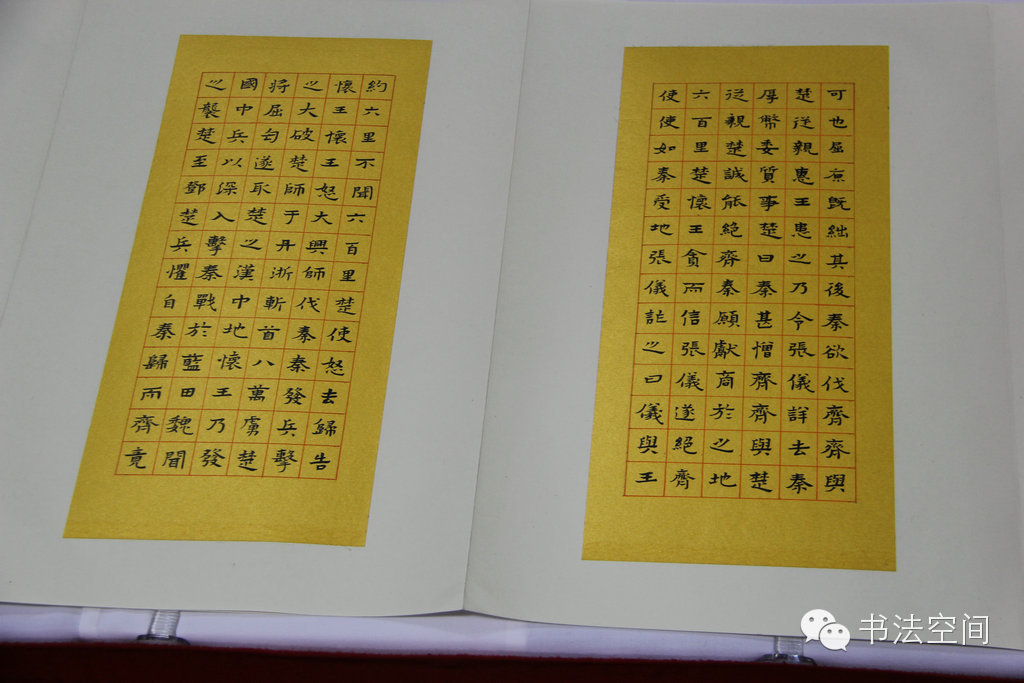 可也屈原既絀其後秦欲伐齊齊與
楚從親惠王患之乃令張儀詳去秦
厚幣委質事楚曰秦甚憎齊齊與楚
從親楚誠能絕齊秦願獻商於之地
六百里楚懷王貪而信張儀遂絕齊
使使如秦受地張儀詐之曰儀與王
約六里不聞六百里楚使怒去歸告
懷王懷王怒大興師伐秦秦發兵擊
之大破楚師于丹淅斬首八萬虜楚
將屈匄遂取楚之漢中地懷王乃發
國中兵以深入擊秦戰於藍田魏聞
之襲楚至鄧楚兵懼自秦歸而齊竟
书法空间